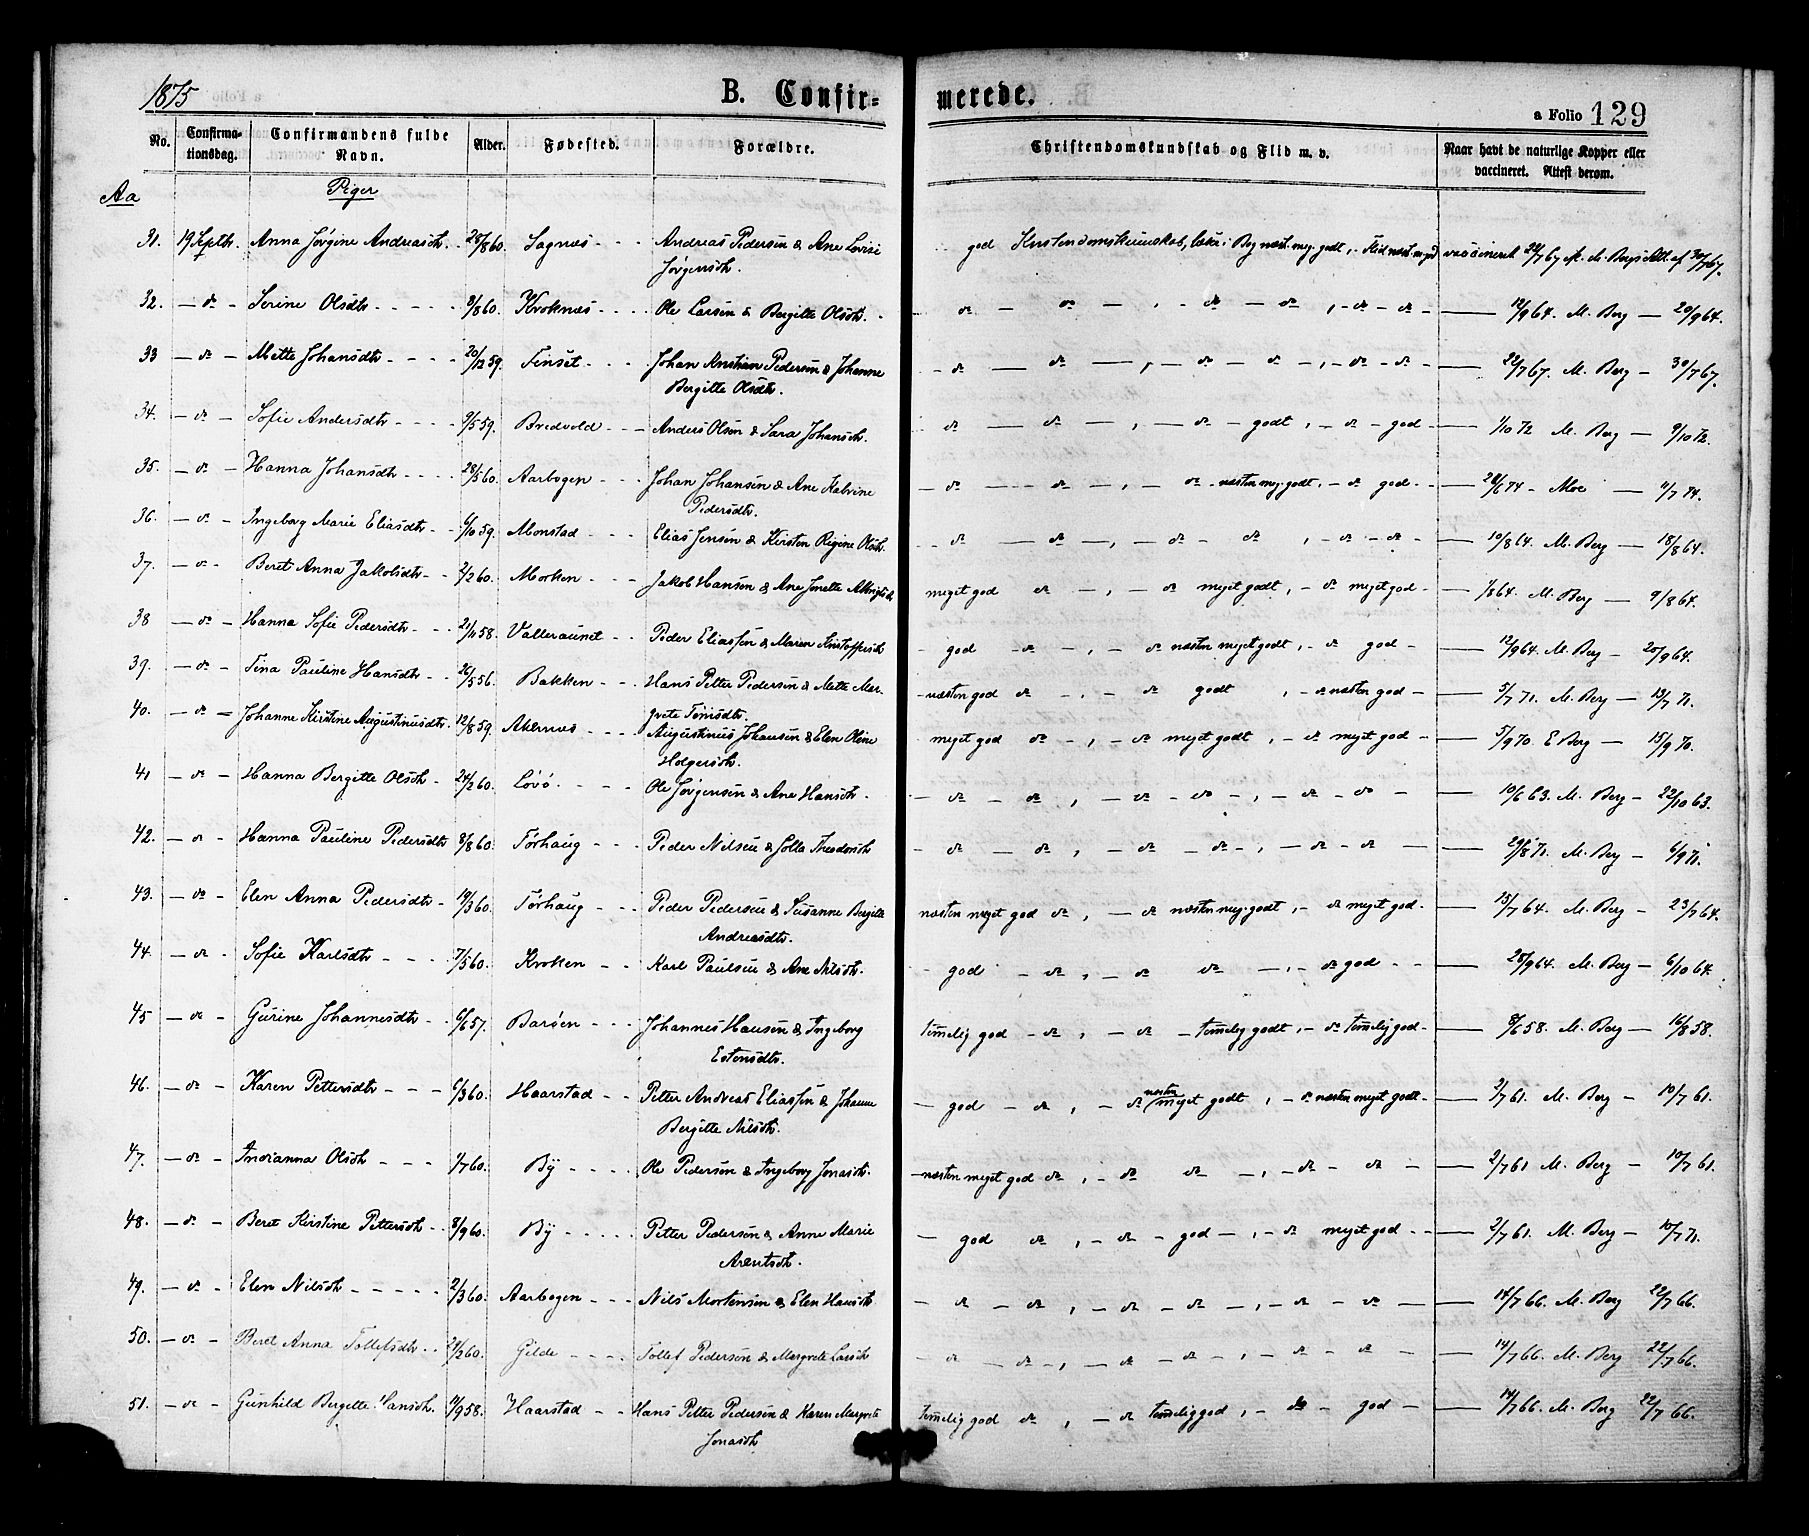 1875 B. Confir- merede. a Folio 129
No. Confirma-tionsdag. Confirmandens fulde Navn. Alder. Fødested. Forældre. Christendomskundskab og Flid m. v. Naar havt de naturlige Kopper eller vaccineret. Attest derom.
Aa Piger
31. 19 Septbr. Anna Jørgine Andreasdtr. 28/8 60. Sagnæs - - - Andreas Pedersen & Ane Lovise god Kristendomskunskab, læser i Bog næst. meg. godt, - Flid næst. m. god vaccineret 22/7 67 af M. Bergs Att. af 30/7 67.
Jørgensdtr.
32. - do - Serine Olsdtr - - - - 8/8 60. Kroknæs - - - Ole Larsen & Bergitte Olsdtr. - do - do - , - do - do , - do - do - 12/9 64. M. Berg - 20/9 64.
33 - do - Mette Johansdtr - - - - 20/12 59. Finset - - - Johan Kristian Pedersen & Johanne - do - do - , - do - do - , - do - do - 22/7 67. M. Berg - 30/7 67.
Bergitte Olsdtr.
34. - do - Sofie Andersdtr - - - - 9/5 59. Bredvold - - - Anders Olsen & Sara Johansdtr. do - do - , - do - godt , - do - god - 1/10 72 M. Berg - 9/10 72.
35. - do - Hanna Johansdtr - - - - 28/5 60. Aarbogen - - - Johan Johansen & Ane Katrine - do - do - , - do - næsten meg. godt, - do god - 28/6 74 - Moe - 11/7 74.
Pedersdtr.
36. - do - Ingeborg Marie Eliasdtr - - 6/10 59. Monstad - - - Elias Jensen & Kirsten Regine Olsdtr. - do - do - , - do - do , - do - do - 10/8 64. M. Berg - 18/8 64.
37. - do - Beret Anna Jakobsdtr - - 2/2 60. Morken - - - Jakob Hansen & Ane Jonette meget god do - , - do meget godt, - do meget god - 1/8 64. M. Berg - 9/8 64.
38 - do - Hanna Sofie Pedersdtr - - 21/11 58. Valleraunet - - Peder Eliassen & Maren Kristoffersdtr - god - do - , - do næsten meget godt, - do god - 12/9 64. M. Berg - 20/9 64.
39. - do - Tina Pauline Hansdtr - - 26/5 56. Bakken - - - Hans Petter Pedersen & Mette Mar- - næsten god do - , - do godt , - do næsten god - 5/7 71. M. Berg - 13/7 71.
grete Tønisdtr.
40. - do - Johanne Kirstine Augustinusdtr. 12/8 59. Akernæs - - - Augustinus Johansen & Elen Oline - meget god do - , - do meget godt , - do meget god - 5/9 70. E Berg - 15/9 70.
Holgersdtr.
41 - do - Hanna Bergitte Olsdtr - 24/2 60. Løvø - - - Ole Jørgensen & Ane Hansdtr - - do - do , - do - do - , - do - do - 10/6 63. M. Berg - 22/10 63.
42. - do - Hanna Pauline Pedersdtr 8/8 60. Tørhaug - - - Peder Nilsen & Theodorsdtr - do - do , - do - do - , - do - do - 29/8 71. M. Berg - 6/9 71.
43. - do - Elen Anna Pedersdtr - 19/3 60. Tørhaug - - Peder Pedersen & Susanne Bergitte næsten meget god do , - do næsten meg. godt , - do meget god - 15/7 64. M. Berg - 23/7 64.
Andreasdtr.
44. - do - Sofie Karlsdtr - - - 7/5 60. Kroken - - Karl Paulsen & Ane Nilsdtr. - god - do , - do do - , - do god - - 28/9 64. M. Berg - 6/10 64.
45 - do - Gurine Johannesdtr - - 6/6 57. Barøen - - - Johannes Hansen & Ingeborg temelig god - do , - do - temelig godt, - do temelig god - 8/6 58. M. Berg - 16/8 58.
Estensdtr.
46. - do - Karen Pettersdtr - - - 6/3 60. Haarstad - - Petter Andreas Eliassen & Johanne - god - do , - do næsten meget godt , - do næsten meget godt - 2/7 61. M. Berg - 10/7 61.
Bergitte Nilsdtr.
47. - do - Indianna Olsdtr - - - 1/7 60. By - - - - Ole Pedersen & Ingeborg Jonasdtr. - næsten meget god do , - do do - , - do - do - 2/7 61 M. Berg - 10/7 61.
48. - do - Beret Kirstine Pettersdtr - 8/9 60. By - - - - - Petter Pedersen & Anne Marie - god do , - do - god - , - do meget god - - 2/7 61. M. Berg - 10/7 71.
Arentsdtr.
49. - do - Elen Nilsdtr - - - - - 2/3 60. Aarbogen - - - Nils Mortensen & Elen Hansdtr - do - do , - do - do - , - do - do - 14/7 66. M. Berg 22/7 66.
50. - do - Beret Anna Tollefsdtr - - 29/2 60. Gilde - - - - Tollef Pedersen & Margrete Larsdtr - do - do , - do - do - , - do - do - 14/7 66. M. Berg 22/7 66.
51. - do - Gunhild Bergitte Hansdtr. 11/9 58. Haarstad - - Hans Petter Pedersen & Karen Margrete temelig god do , - do temelig god , - do - god - 14/7 66. M. Berg 22/7 66.
Jonasdtr